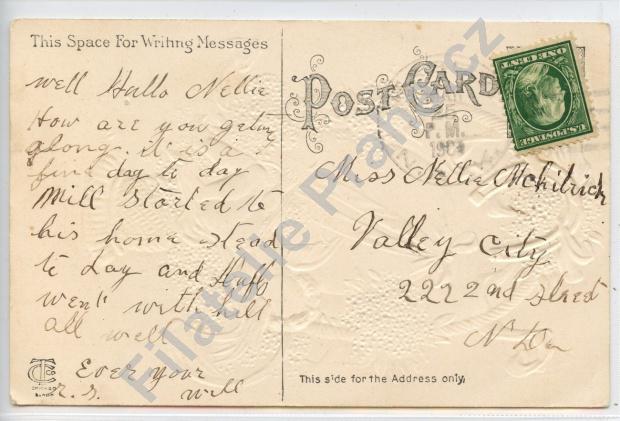 This Space For Writing Messages
well Hallo Nellie
How are you getting
along. it is a
fine day to day
Mill started to
his home stead
to day and Huff
went with hill
all well
Ever your
r. s. will
POST CARD
P. M.
ONE CENT
U.S. POSTAGE
Miss Nellie
Valley City
2222nd street
N Da
This side for the Address only,
CHICAGO
Filatelie Praha.cz